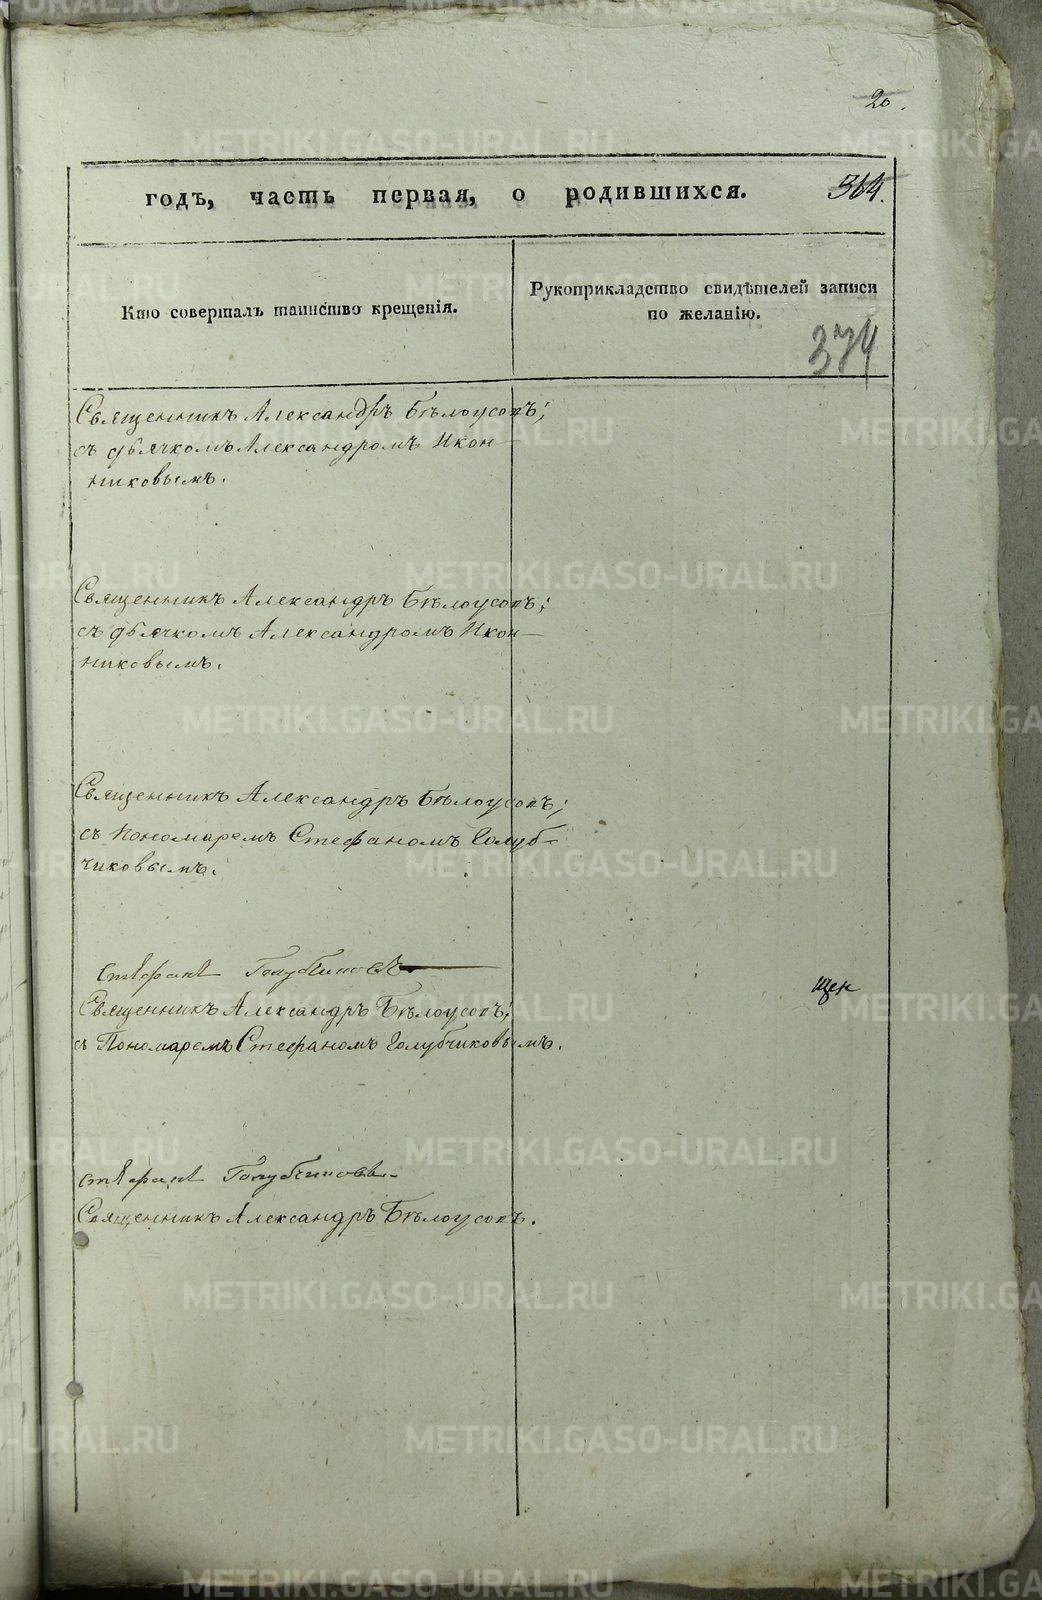 20.
годъ, часть первая, о родившихся. 364.
Кто совершалъ таинство крещенія.
Рукоприкладство свидѣтелей записи
по желанію.
374
Священникъ Александръ Бѣлоусовъ;
съ дьячкомъ Александромъ Икон-
никовымъ.
Священникъ Александръ Бѣлоусовъ;
съ дьячкомъ Александромъ Икон-
никовымъ.
Священникъ Александръ Бѣлоусовъ;
съ Пономаремъ Стефаномъ Голуб-
чиковымъ.
Стефанъ Голубчиковъ
Священникъ Александръ Бѣлоусовъ;
съ Пономаремъ Стефаномъ Голубчиковымъ.
щен
Стефанъ Голубчиковъ
Священникъ Александръ Бѣлоусовъ.
METRIKI.GASO-URAL.RU